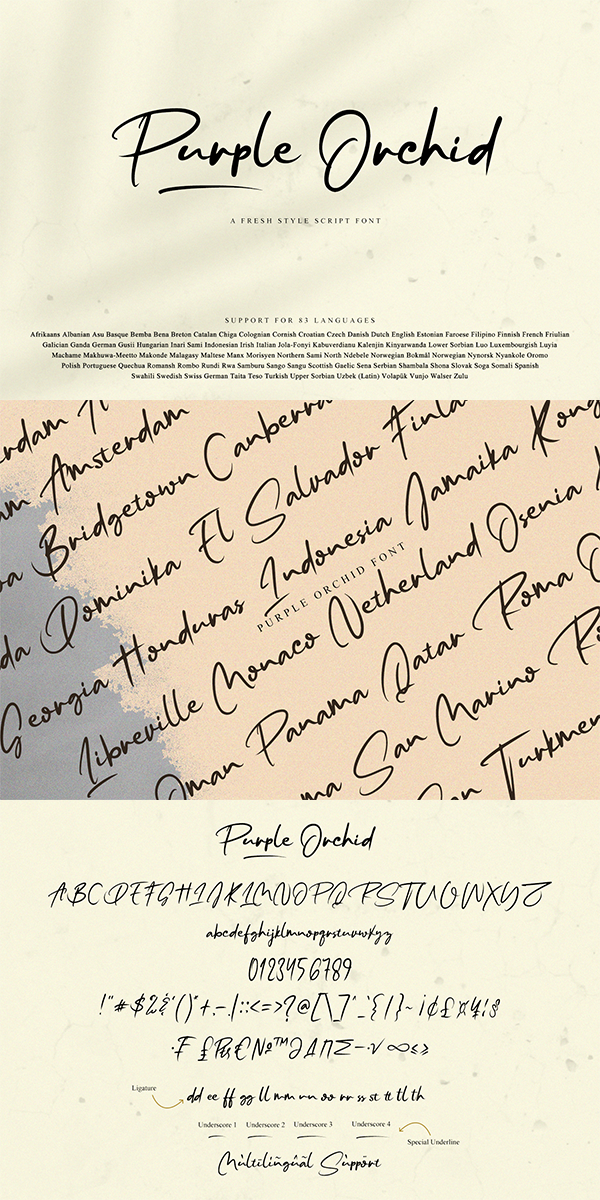 Purple Orchid
A FRESH STYLE SCRIPT FONT
SUPPORT FOR 83 LANGUAGES
Afrikaans Albanian Asu Basque Bemba Bena Breton Catalan Chiga Colognian Cornish Croatian Czech Danish Dutch English Estonian Faroese Filipino Finnish French Friulian
Galician Ganda German Gusii Hungarian Inari Sami Indonesian Irish Italian Jola-Fonyi Kabuverdianu Kalenjin Kinyarwanda Lower Sorbian Luo Luxembourgish Luyia
Machame Makhuwa-Meetto Makonde Malagasy Maltese Manx Morisyen Northern Sami North Ndebele Norwegian Bokmål Norwegian Nynorsk Nyankole Oromo
Polish Portuguese Quechua Romansh Rombo Rundi Rwa Samburu Sango Sangu Scottish Gaelic Sena Serbian Shambala Shona Slovak Soga Somali Spanish
Swahili Swedish Swiss German Taita Teso Turkish Upper Sorbian Uzbek (Latin) Volapük Vunjo Walser Zulu
rdam
am Amsterdam
Bridgetown Canberra
da Dominika El Salvador Finla
Georgia Honduras Indonesia Jamaika Kong
PURPLE ORCHID FONT
Libreville Monaco Netherland Osenia
Oman Panama Qatar Roma
ma San Marino
Turkmen
Purple Orchid
ABCDEFGHIJKLMNOPQRSTUVWXYZ
abcdefghijklmnopqrstuvwxyz
0123456789
Ligature
dd ee ff gg ll mm nn oo rr ss st tt tl th
Underscore 1 Underscore 2 Underscore 3 Underscore 4
Special Underline
Mùltilïngûãl Sùppört